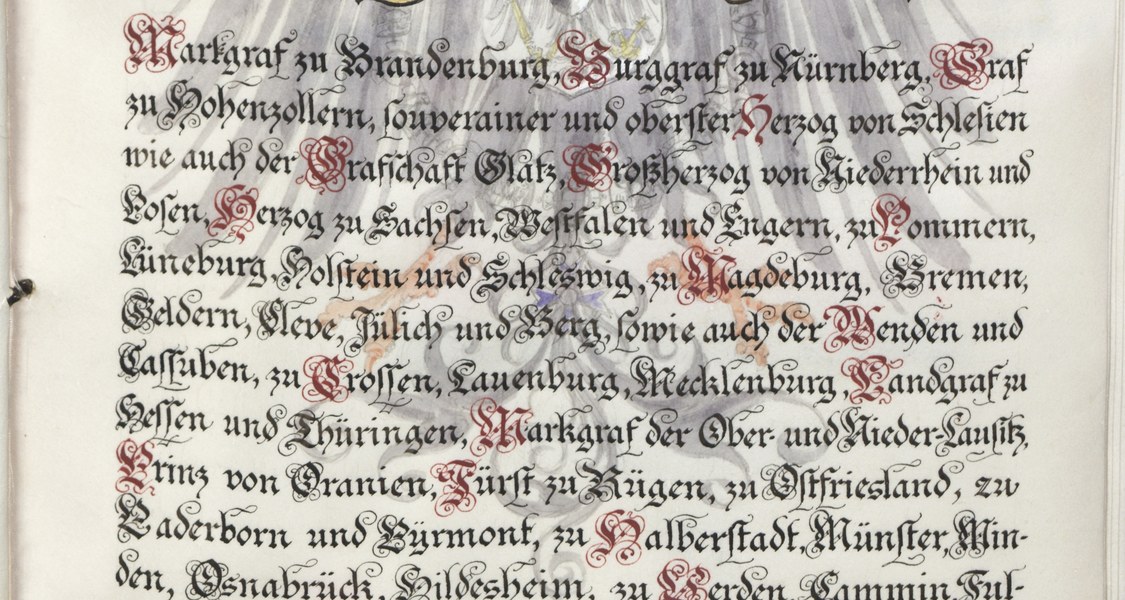 Markgraf zu Brandenburg, Burggraf zu Nürnberg, Graf
zu Hohenzollern, souverainer und oberster Herzog von Schlesien
wie auch der Grafschaft Glatz, Großherzog von Niederrhein und
Posen, Herzog zu Sachsen, Westfalen und Engern, zu Pommern,
Lüneburg, Holstein und Schleswig, zu Magdeburg, Bremen,
Geldern, Cleve, Jülich und Berg, sowie auch der Wenden und
Cassuben, zu Crossen, Lauenburg, Mecklenburg, Landgraf zu
Hessen und Thüringen, Markgraf der Ober- und Nieder-Lausitz,
Prinz von Oranien, Fürst zu Rügen, zu Ostfriesland, zu
Paderborn und Pyrmont, zu Halberstadt, Münster, Min-
den, Osnabrück, Hildesheim, zu Verden, Cammin, Ful-